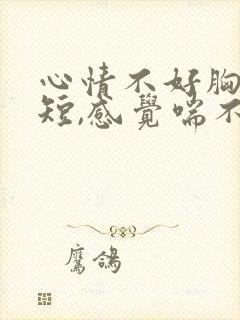 心情不好胸
短,感覺喘不
鷹鴿